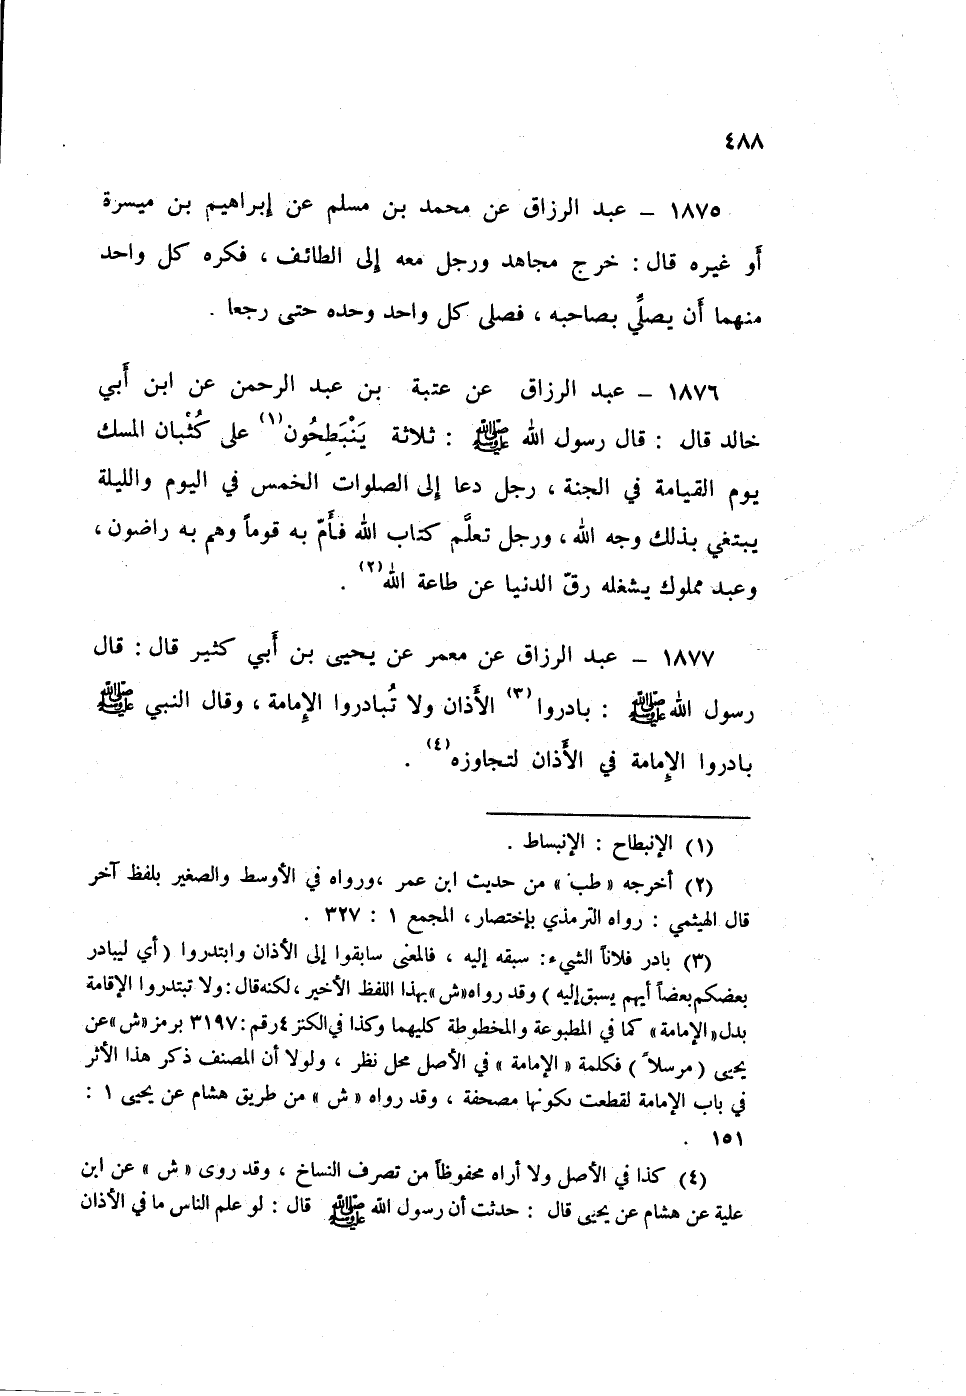 ٤٨٨
١٨٧٥ – عبد الرزاق عن محمد بن مسلم عن إبراهيم بن ميسرة
أو غيره قال : خرج مجاهد ورجل معه إلى الطائف ، فكره كل واحد
منهما أن يصلِّي بصاحبه ، فصلى كل واحد وحده حتى رجعا .
١٨٧٦ – عبد الرزاق عن عتبة بن عبد الرحمن عن ابن أبي
خالد قال : قال رسول الله ﷺ : ثلاثة يَنْبَطِحُون(١) على كُثْبان المسك
يوم القيامة في الجنة ، رجل دعا إلى الصلوات الخمس في اليوم والليلة
يبتغي بذلك وجه الله ، ورجل تعلَّم كتاب الله فأَمّ به قوماً وهم به راضون ،
وعبد مملوك يشغله رقّ الدنيا عن طاعة الله(٢) .
١٨٧٧ – عبد الرزاق عن معمر عن يحيى بن أبي كثير قال : قال
رسول الله ﷺ : بادروا(٣) الأَذان ولا تُبادروا الإمامة ، وقال النبي ﷺ
بادروا الإمامة في الأَذان لتجاوزه(٤) .
(١) الإنبطاح : الإنبساط .
(٢) أخرجه « طب » من حديث ابن عمر ، ورواه في الأوسط والصغير بلفظ آخر
قال الهيثمي : رواه الترمذي بإختصار ، المجمع ١ : ٣٢٧ .
(٣) بادر فلاناً الشيء : سبقه إليه ، فالمعنى سابقوا إلى الأذان وابتدروا ( أي ليبادر
بعضكم بعضاً أيهم يسبق إليه ) وقد رواه «ش» بهذا اللفظ الأخير ، لكنه قال : ولا تبتدروا الإقامة
بدل «الإمامة» كما في المطبوعة والمخطوطة كليهما وكذا في الكنز ٤ رقم : ٣١٩٧ برمز «ش» عن
يحيى ( مرسلاً ) فكلمة « الإمامة » في الأصل محل نظر ، ولولا أن المصنف ذكر هذا الأثر
في باب الإمامة لقطعت بكونها مصحفة ، وقد رواه « ش » من طريق هشام عن يحيى ١ :
١٥١ .
(٤) كذا في الأصل ولا أراه محفوظاً من تصرف النساخ ، وقد روى « ش » عن ابن
علية عن هشام عن يحيى قال : حدثت أن رسول الله ﷺ قال : لو علم الناس ما في الأذان